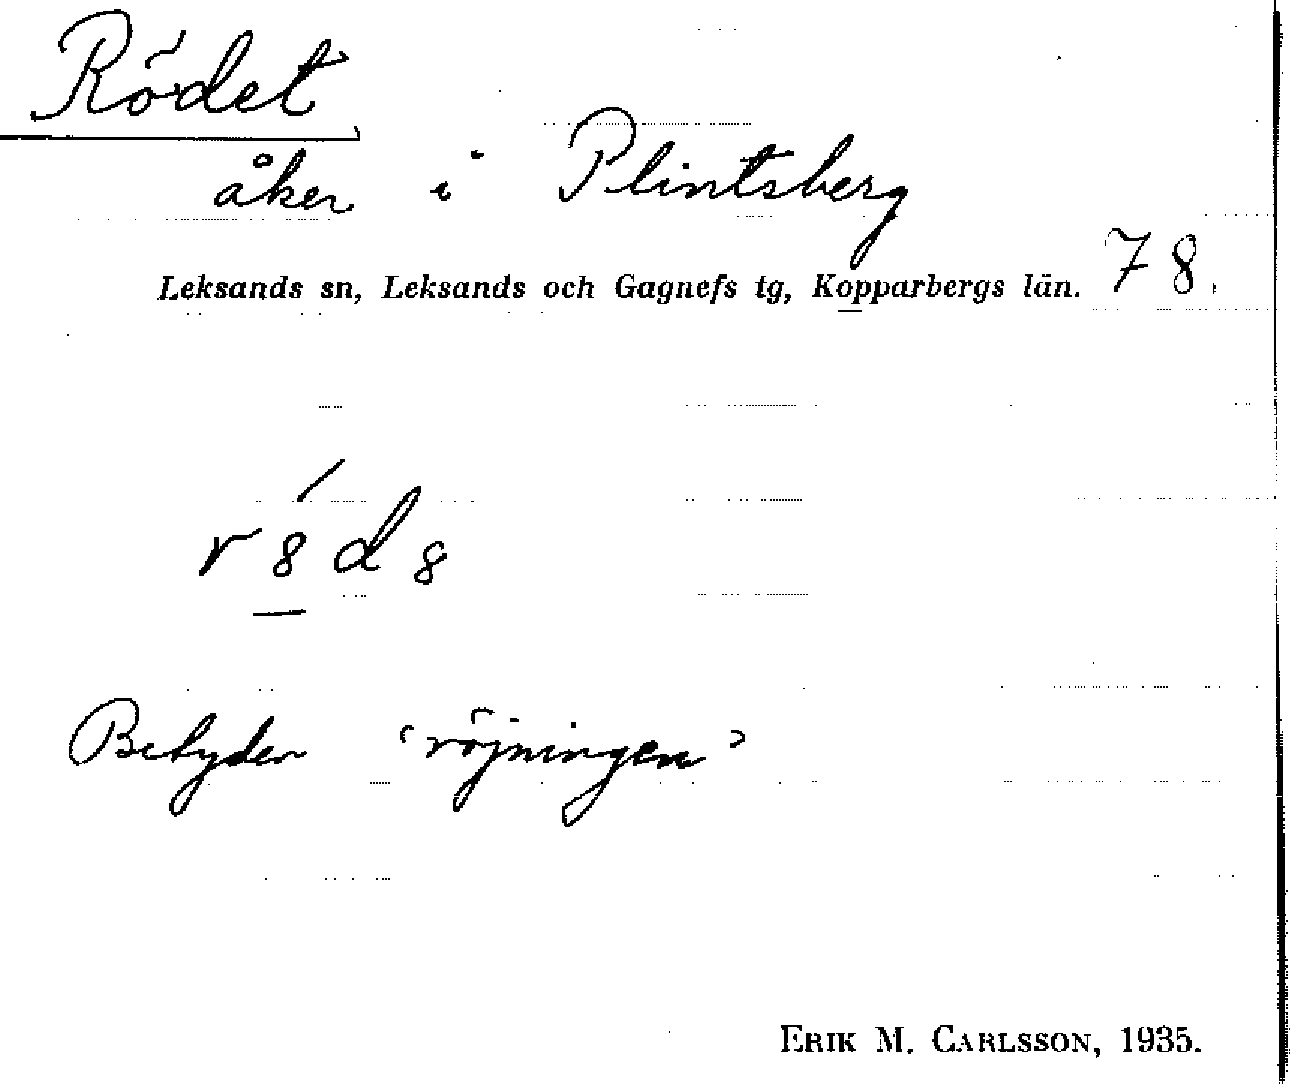 Rödet
åker i Plintsberg
Leksands sn, Leksands och Gagnefs tg, Kopparbergs län. 78.
Betyder 'röjningen'
ERIK M. CARLSSON, 1935.